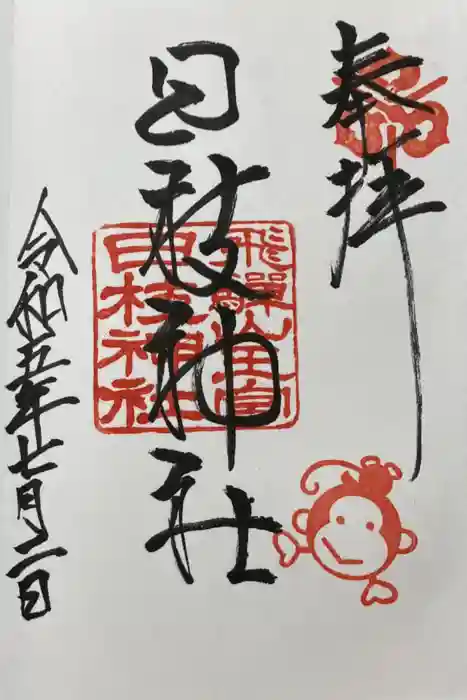 奉拝
飛驒山王宮
日枝神社
日枝神社
令和五年七月二日